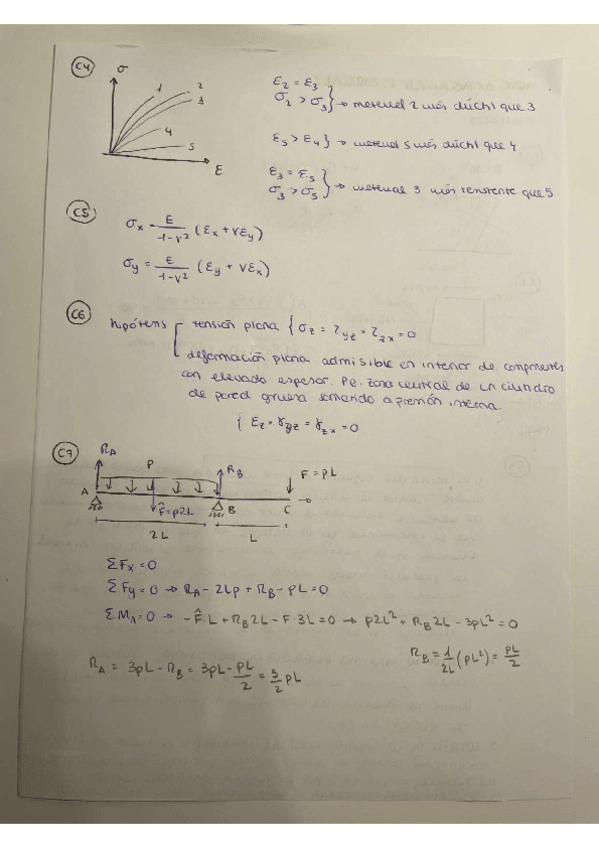 C4
σ
1
2
3
4
5
ε
ε₂ = ε₃
σ₂ > σ₃ } → material 2 más dúctil que 3
ε₅ > ε₄ } → material 5 más dúctil que 4
ε₃ = ε₅
σ₃ > σ₅ } → material 3 más resistente que 5
C5
σx = E/(1-ν²) (εx + νεy)
σy = E/(1-ν²) (εy + νεx)
C6
hipótesis
tensión plana { σz = τyz = τzx = 0
deformación plana admisible en interior de componentes
con elevado espesor. Pe. zona central de un cilindro
de pared gruesa sometido a presión interna.
{ εz = γyz = γzx = 0
C7
RA
P
RB
F = pL
A
F̂=p2L
B
C
2L
L
ΣFx = 0
ΣFy = 0 → RA - 2Lp + RB - pL = 0
ΣMA = 0 → -F̂·L + RB2L - F·3L = 0 → p2L² + RB2L - 3pL² = 0
RB = 1/2L (pL²) = pL/2
RA = 3pL - RB = 3pL - pL/2 = 5/2 pL